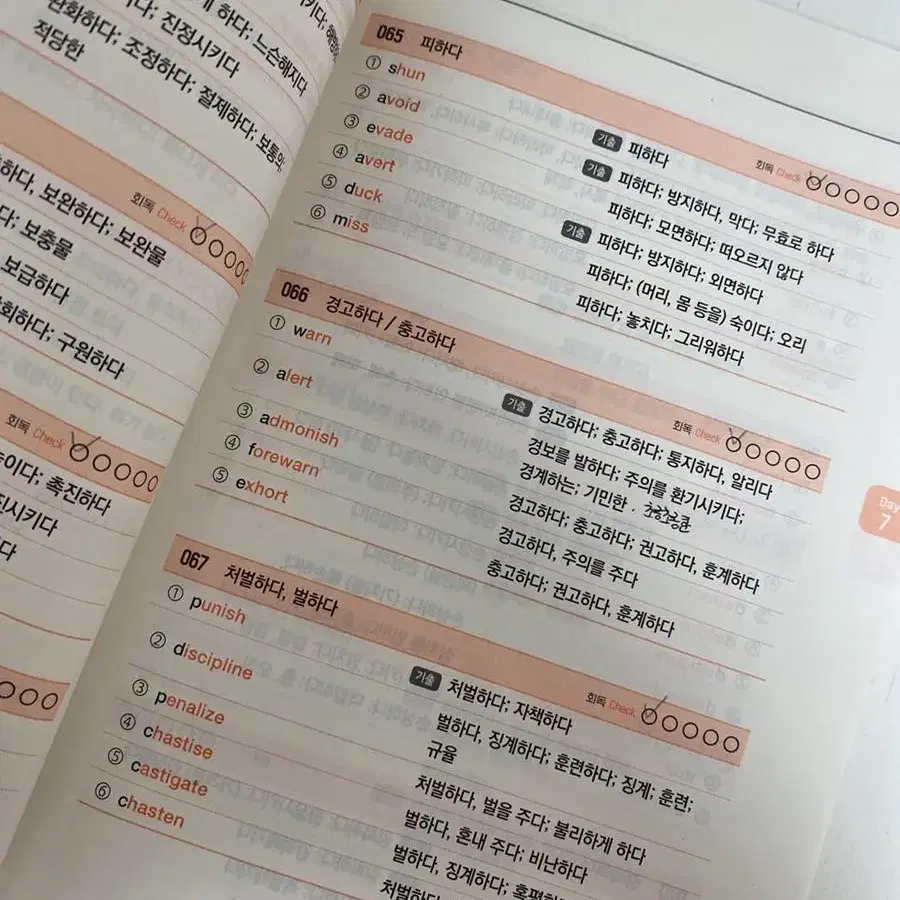 하다; 느슨해지다
다; 진정시키다
완화하다; 조정하다; 절제하다; 보통의,
적당한
회독 Check
하다, 보완하다; 보완물
다; 보충물
보급하다
회하다; 구원하다
회독 Check
이다; 촉진하다
진시키다
065 피하다 회독 Check
① shun 기출 피하다
② avoid 기출 피하다; 방지하다, 막다; 무효로 하다
③ evade 피하다; 모면하다; 떠오르지 않다
④ avert 기출 피하다; 방지하다; 외면하다
⑤ duck 피하다; (머리, 몸 등을) 숙이다; 오리
⑥ miss 피하다; 놓치다; 그리워하다
066 경고하다 / 충고하다 회독 Check
① warn 기출 경고하다; 충고하다; 통지하다, 알리다
② alert 경보를 발하다; 주의를 환기시키다;
경계하는; 기민한
③ admonish 경고하다; 충고하다; 권고하다, 훈계하다
④ forewarn 경고하다, 주의를 주다
⑤ exhort 충고하다; 권고하다, 훈계하다
067 처벌하다, 벌하다 회독 Check
① punish 기출 처벌하다; 자책하다
② discipline 벌하다, 징계하다; 훈련하다; 징계; 훈련;
규율
③ penalize 처벌하다, 벌을 주다; 불리하게 하다
④ chastise 벌하다, 혼내 주다; 비난하다
⑤ castigate 벌하다, 징계하다; 혹평하다
⑥ chasten 처벌하다
Day
7